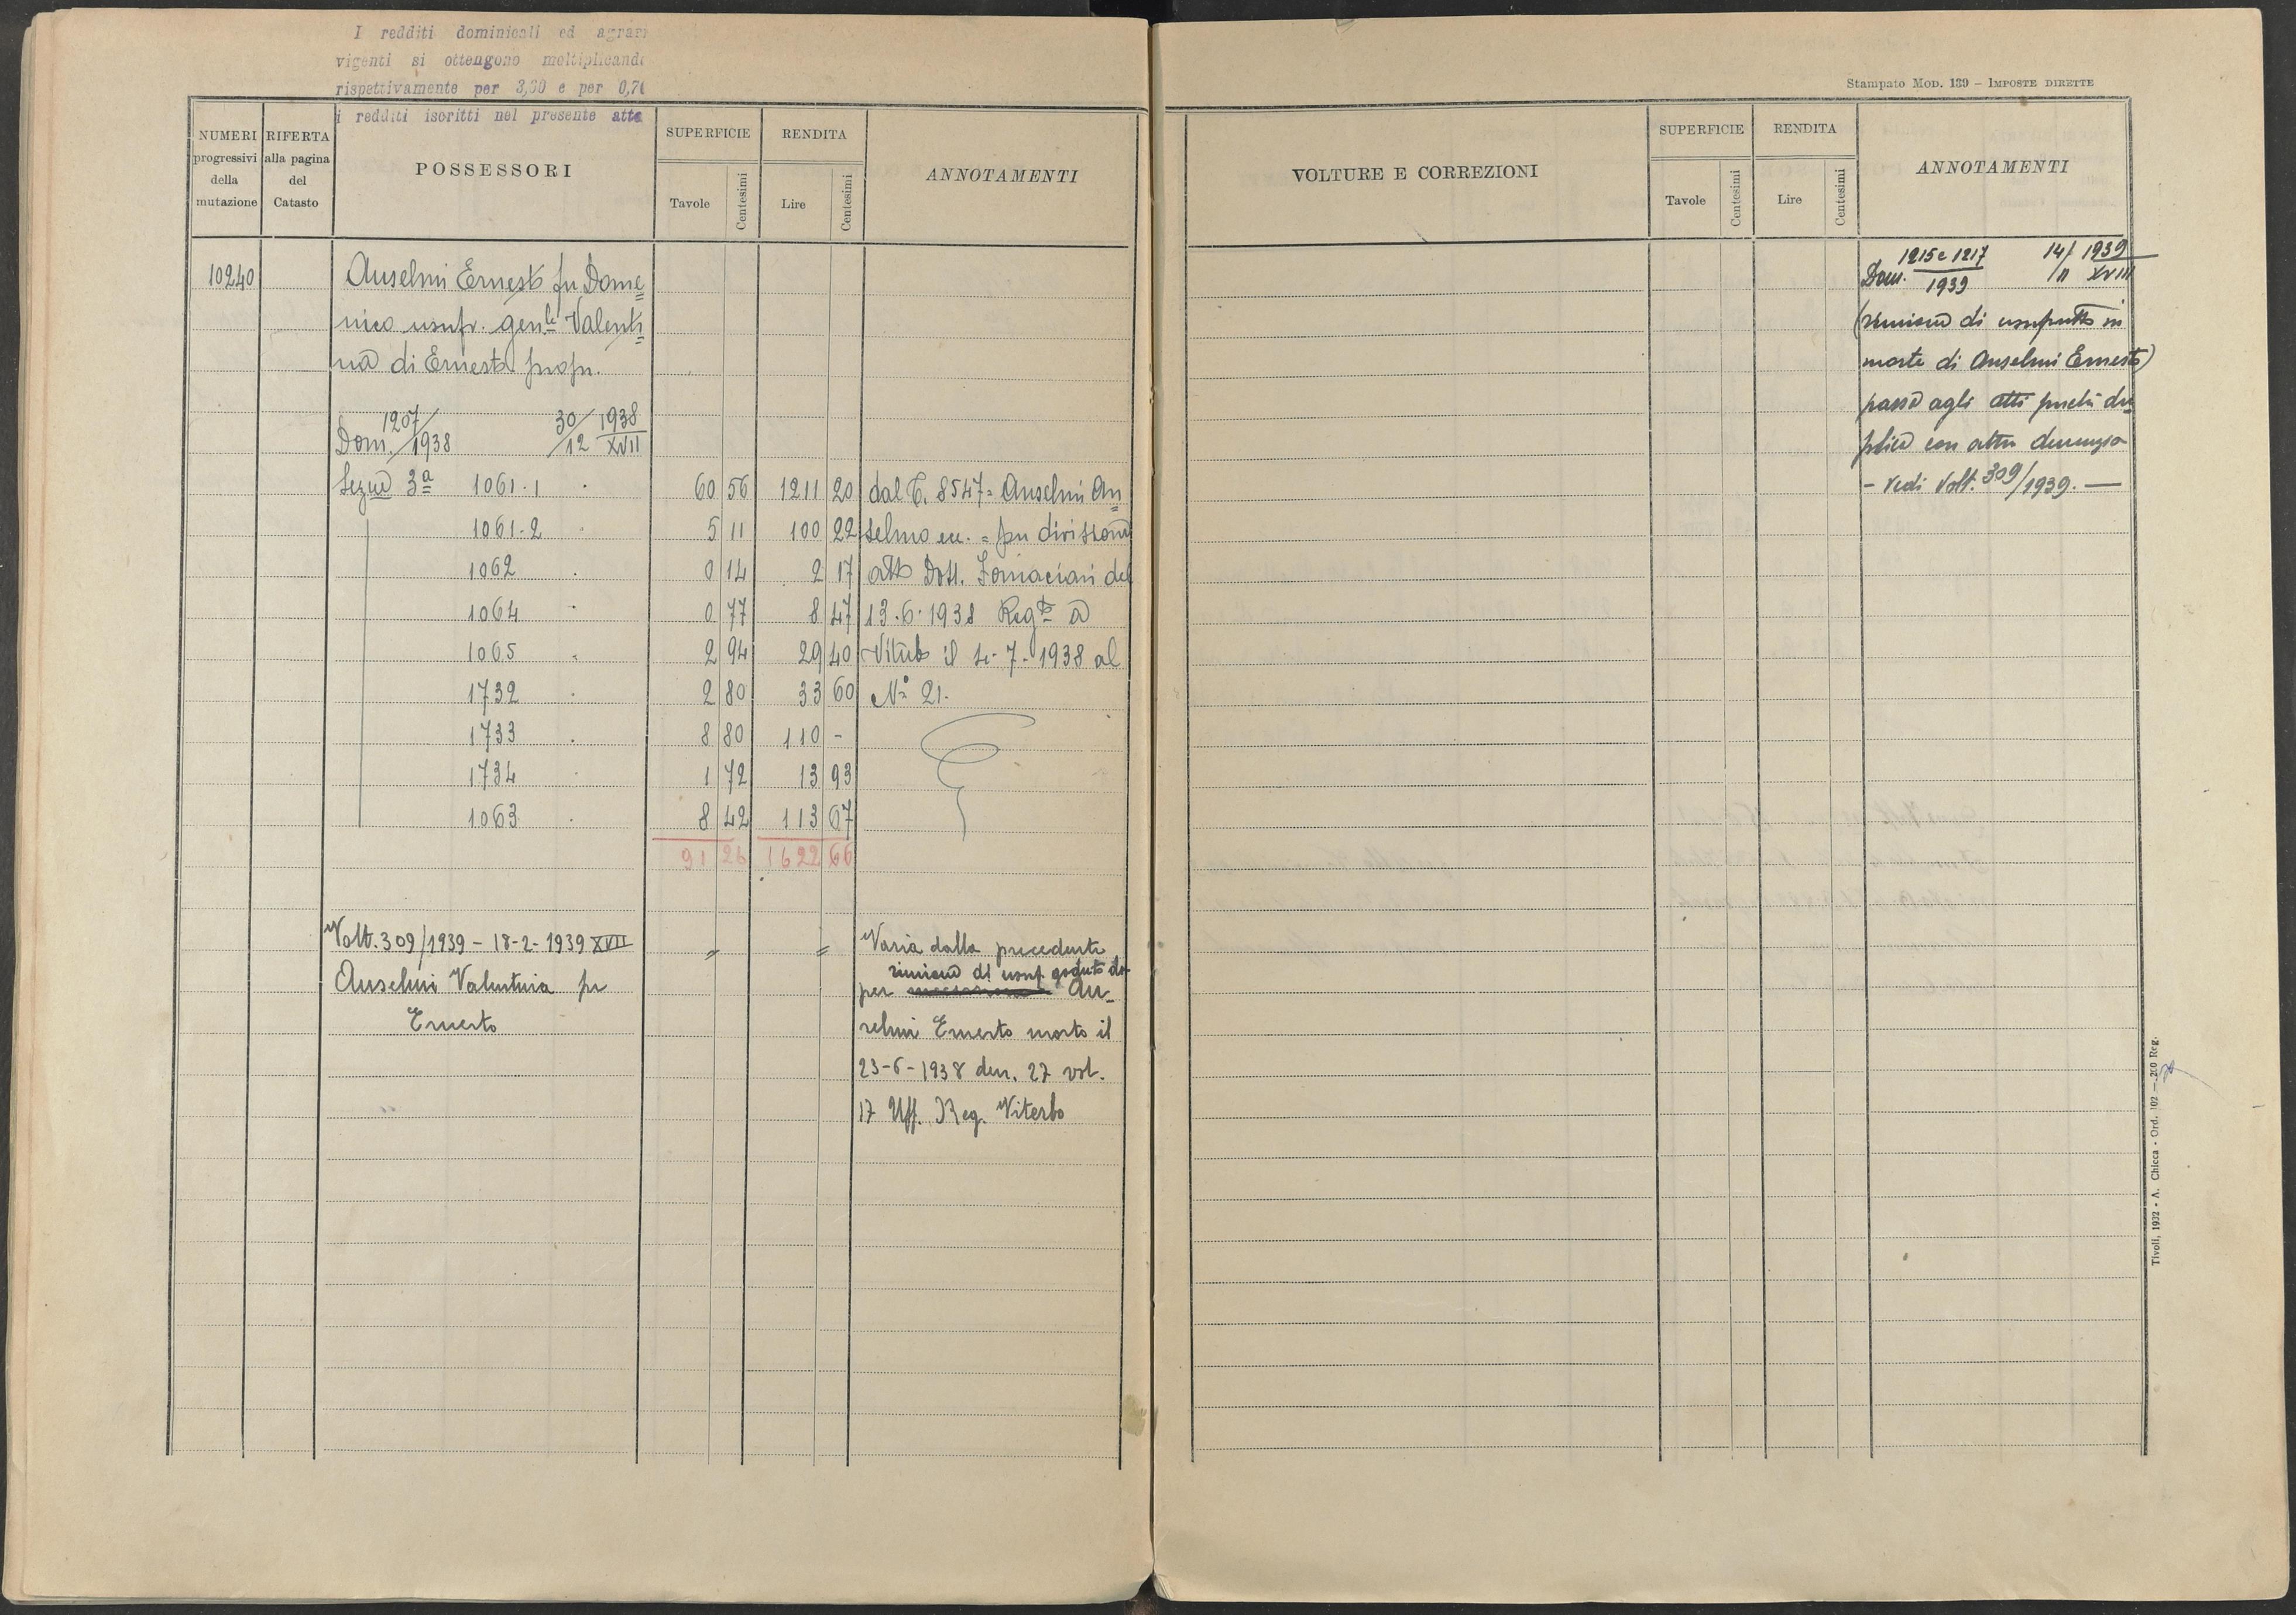 I redditi dominicali ed agrari
vigenti si ottengono moltiplicando
rispettivamente per 3,60 e per 0,70
i redditi iscritti nel presente atto
NUMERI progressivi della mutazione
RIFERTA alla pagina del Catasto
POSSESSORI
SUPERFICIE
Tavole
Centesimi
RENDITA
Lire
Centesimi
ANNOTAMENTI
10240
Anselmi Ernesto fu Dome=
nico usufr. gen.le Valenti=
na di Ernesto propr.
Dom. 1207/1938 30/12 1938 XVII
Sez. 3a 1061.1 60 56 1211 20 dal C. 8547= Anselmi An=
1061-2 5 11 100 22 selmo ecc. = per divisione
1062 0 14 2 17 atto Dott. Fornaciari del
1064 0 77 8 47 13.6.1938 Reg.to a
1065 2 94 29 40 Viterbo il 4-7-1938 al
1732 2 80 33 60 N° 21.
1733 8 80 110 -
1734 1 72 13 93
1063 8 42 113 67
91 26 1622 66
Volt. 309/1939 - 18-2-1939 XVII
Anselmi Valentina fu
Ernesto
Varia dalla precedente
riunione di usuf. goduto da
per An-
selmi Ernesto morto il
23-6-1938 den. 27 vol.
17 Uff. Reg. Viterbo
Stampato MOD. 139 – IMPOSTE DIRETTE
VOLTURE E CORREZIONI
SUPERFICIE
Tavole
Centesimi
RENDITA
Lire
Centesimi
ANNOTAMENTI
Dom. 1215 e 1217/1939 14/11 1939 XVIII
(riunione di usufrutto in
morte di Anselmi Ernesto)
passa agli atti perché du=
plica con altra denunzia
- Vedi Volt. 309/1939. —
Tivoli, 1932 - A. Chicca - Ord. 102 — 200 Reg.